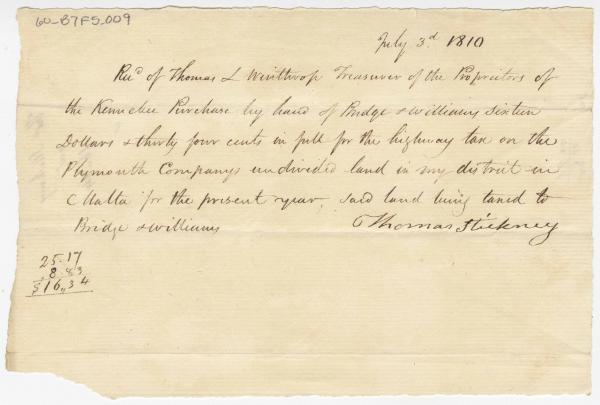 60-B7F5-009
July 3.d 1810
Rec.d of Thomas L Winthrop Treasurer of the Proprietors of
the Kennebec Purchase by hand of Bridge & Williams sixteen
Dollars & thirty four cents in full for the highway tax on the
Plymouth Companys undivided land in my district in
Malta for the present year, said land being taxed to
Bridge & Williams
Thomas Stickney
25.17
8.83
$16,34